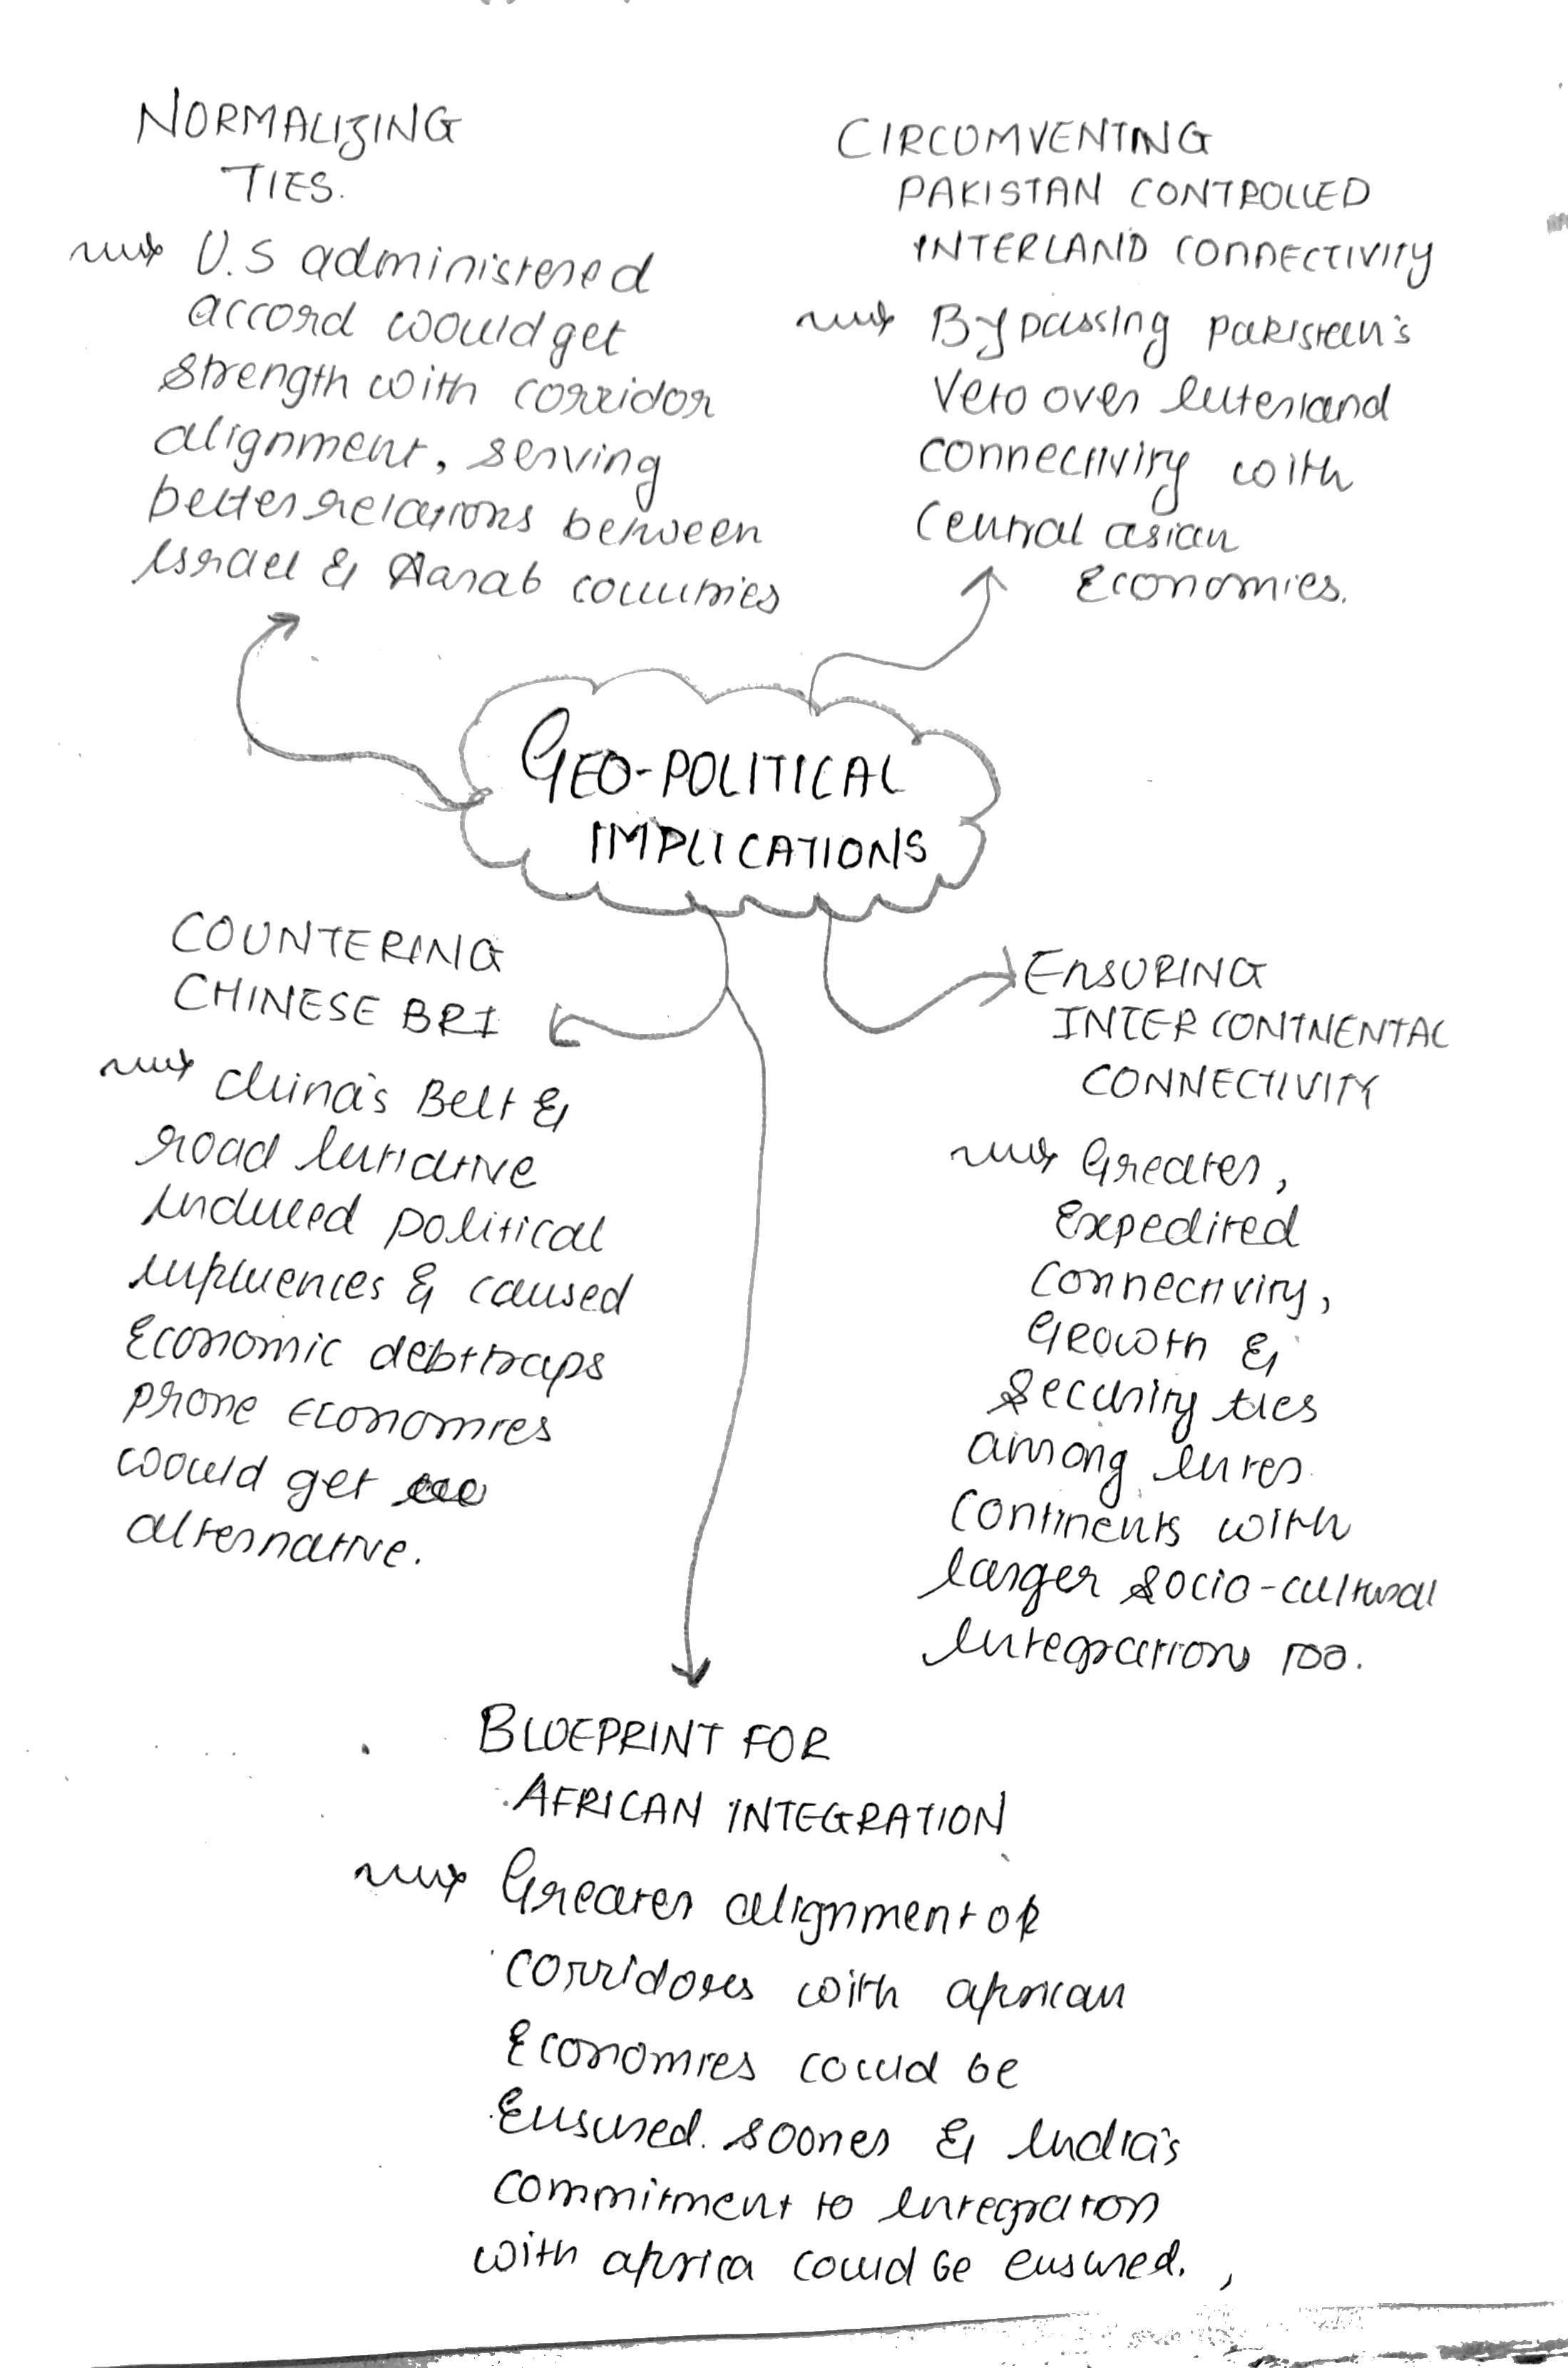 NORMALIZING
TIES.
U.S administered
accord would get
strength with corridor
alignment, serving
better relations between
Israel & Aarab countries
CIRCOMVENTING
PAKISTAN CONTROLLED
INTERLAND CONNECTIVITY
Bypassing pakistan's
Veto over Interland
connectivity with
Central asian
Economies.
GEO-POLITICAL
IMPLICATIONS
COUNTERING
CHINESE BRI
China's Belt &
road Initiative
induced political
influences & caused
Economic debttraps
prone Economies
would get
alternative.
ENSURING
INTER CONTINENTAL
CONNECTIVITY
Greater,
Expedited
Connectivity,
Growth &
Security ties
among inter
continents with
larger socio-cultural
Integration too.
BLUEPRINT FOR
AFRICAN INTEGRATION
Greater alignment of
corridores with african
Economies could be
Ensured. sooner & India's
commitment to Integraton
with africa could be ensured.